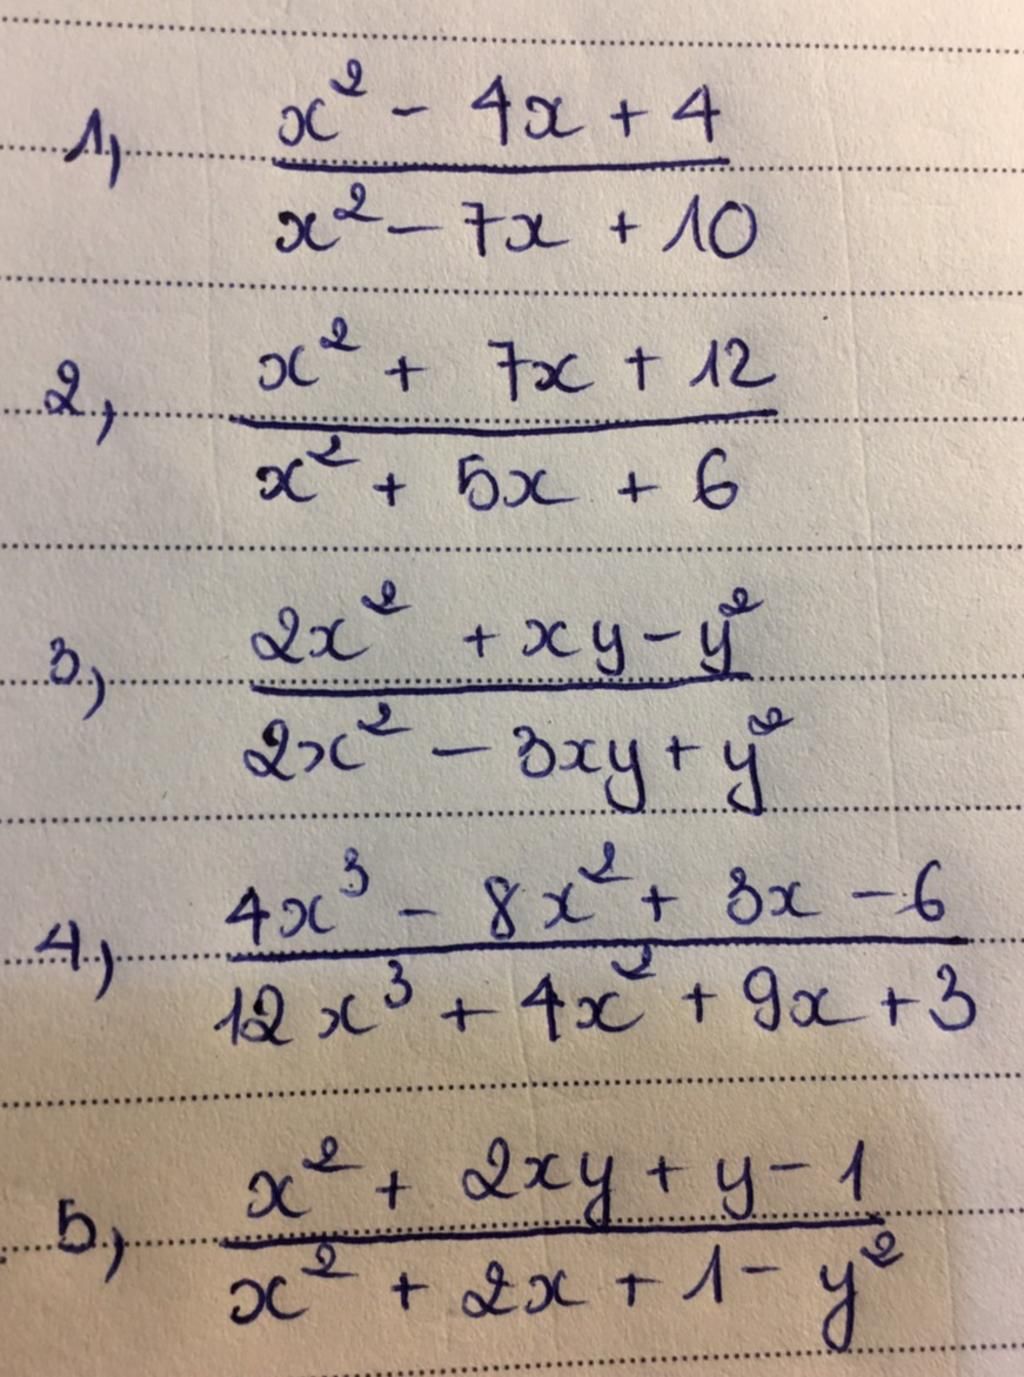 1, x² - 4x + 4
x² - 7x + 10
2, x² + 7x + 12
x² + 5x + 6
3, 2x² + xy - y²
2x² - 3xy + y²
4, 4x³ - 8x² + 3x - 6
12x³ + 4x² + 9x + 3
5, x² + 2xy + y - 1
x² + 2x + 1 - y²